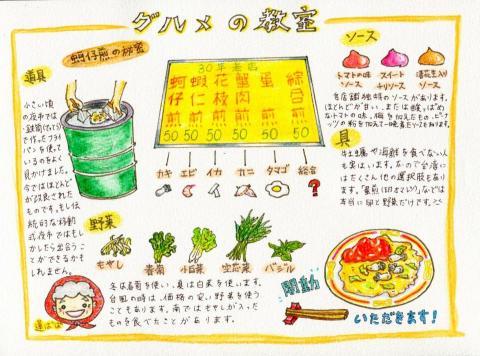 グルメの教室
蚵仔煎の秘密
道具
小さい頃
の夜市では
鉄筒(てっとう)
で作ったフライ
パンを使って
いるのをよく
見かけました。
今ではほとんど
が改良された
ものです。もし伝
統的な移動
式夜市ではもし
かしたら出会うこ
とができるかも
しれません。
30年老店
蚵仔煎 50
蝦仁煎 50
花枝煎 50
蟹肉煎 50
蛋煎 50
綜合煎 50
カキ
エビ
イカ
カニ
タマゴ
総合
?
ソース
トマトの味
ソース
スイート
チリソース
ソース
各店舗独特のソースがあります。
ほとんどが甘い、または酸っぱめ
なトマトの味、
具
牡蠣や海鮮を食べない人
も実はいます。なので台湾に
はたくさん他の選択肢もあり
ます。「蛋煎(」などは
本当に卵と野菜だけです。
野菜
もやし
春菊
小白菜
空芯菜
バジル
冬は春菊を使い、夏は白菜を使います。
台風の時は、価格の安い野菜を使う
こともあります。南ではもやしが入った
ものを食べたことがあります。
開動
いただきます!